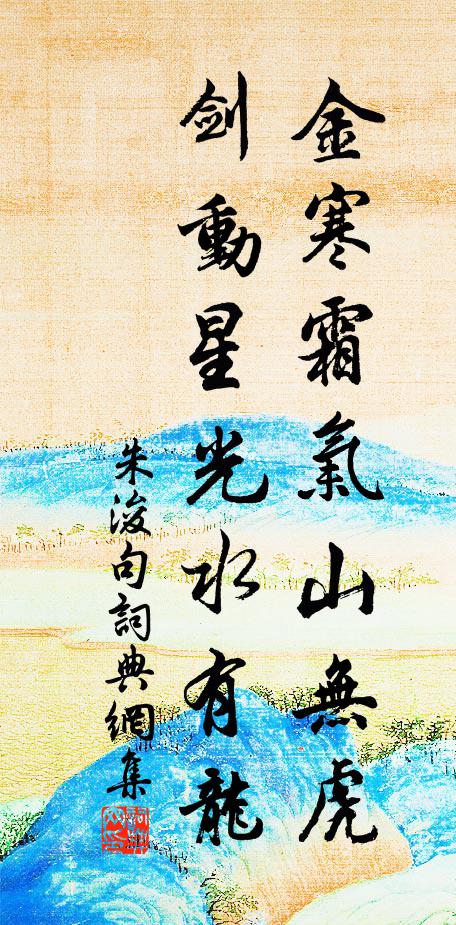 金寒霜氣山無虎
劍動星光水有龍
朱浚句詞典網集